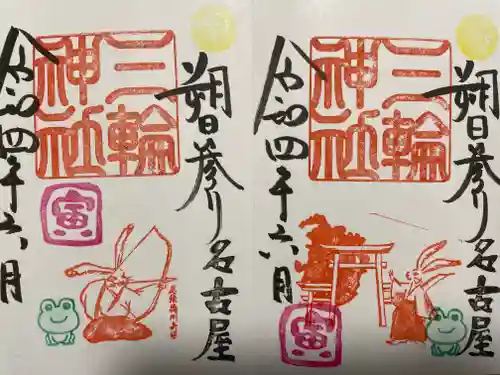 朔日参り名古屋
三輪
神社
令和四年六月
寅
朔日参り名古屋
三輪
神社
令和四年六月
寅